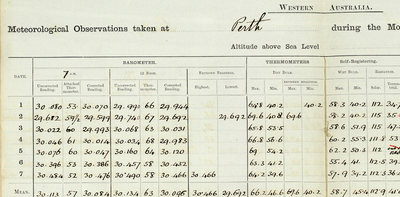 WESTERN AUSTRALIA.
Meteorological Observations taken at Perth during the Mo
Altitude above Sea Level
BAROMETER. THERMOMETERS Self-Registering.
DATE. 7 A.M. 12 NOON. EXTREME READINGS. DRY BULB WET BULB.
Uncorrected Reading. Attached Thermometer. Corrected Reading. Uncorrected Reading. Corrected Reading. Highest. Lowest. Max. Min. Max. Min. Max. Min.
1 30.080 53 30.070 29.991 66 29.944 64.8 40.2 40.2 58.3 40.2 112.
2 29.682 59½ 29.599 29.741 67 29.692 29.692 69.6 40.8 69.6 58.2 40.2 115
3 30.022 60 29.993 30.068 63 30.031 65.8 53.5 58.6 51.9 115
4 30.046 61 30.014 30.034 68 29.983 66.8 56.6 60.2 55.3 111.8
5 30.076 60 30.047 30.160 64 30.120 69 54.2 62.2 50.3 112
6 30.396 53 30.386 30.457 58 30.432 63.3 41.2 55.4 41. 112.5
7 30.484 52 30.476 30.490 58 30.466 30.466 64.2 39.6 57.9 34.2 112.3
MEAN: 30.113 57 30.084 30.134 63 30.095 30.466 29.692 66.2 46.6 69.6 40.2 58.7